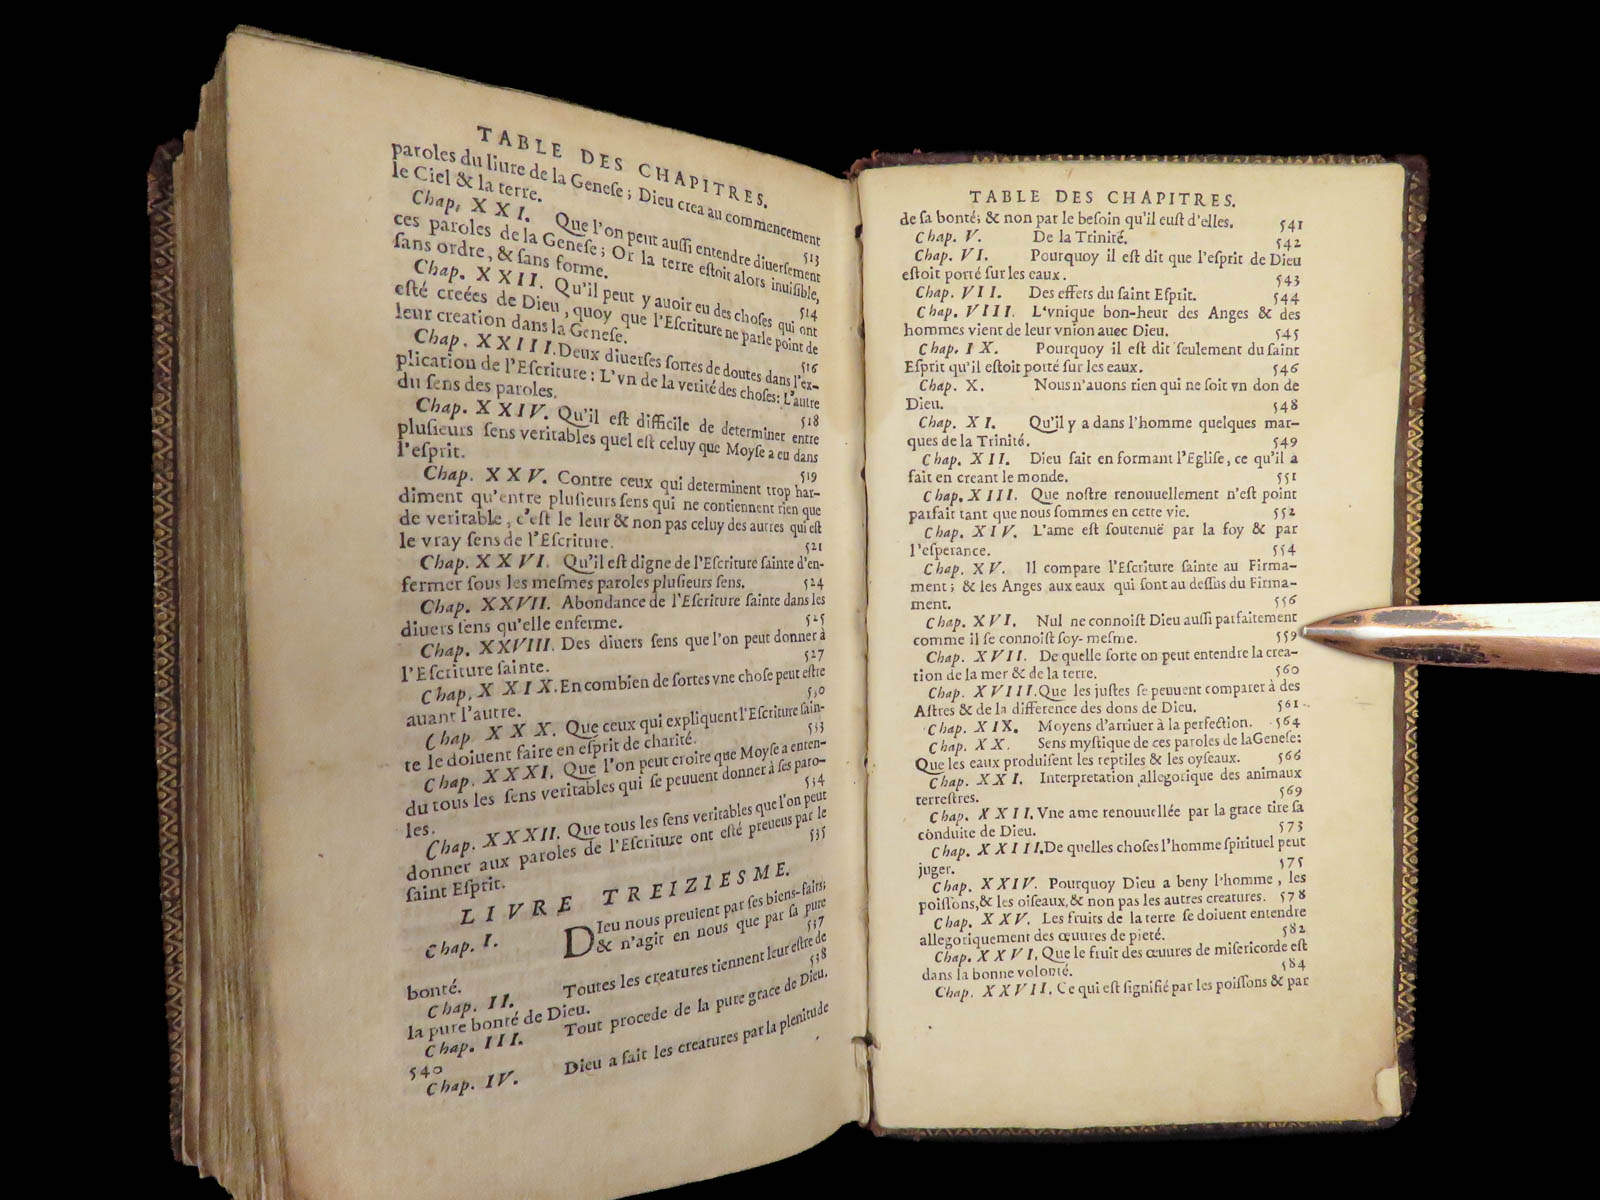 TABLE DES CHAPITRES.
paroles du liure de la Geneſe; Dieu crea au commencement
le Ciel & la terre. 513
Chap. XXI. Que l'on peut auſſi entendre diuerſement
ces paroles de la Geneſe; Or la terre eſtoit alors inuiſible,
ſans ordre, & ſans forme. 514
Chap. XXII. Qu'il peut y auoir eu des choſes qui ont
eſté creées de Dieu, quoy que l'Eſcriture ne parle point de
leur creation dans la Geneſe. 516
Chap. XXIII. Deux diuerſes ſortes de doutes dans l'ex-
plication de l'Eſcriture: L'vn de la verité des choſes: L'autre
du ſens des paroles. 518
Chap. XXIV. Qu'il eſt difficile de determiner entre
pluſieurs ſens veritables quel eſt celuy que Moyſe a eu dans
l'eſprit. 519
Chap. XXV. Contre ceux qui determinent trop har-
diment qu'entre pluſieurs ſens qui ne contiennent rien que
de veritable, c'eſt le leur & non pas celuy des autres qui eſt
le vray ſens de l'Eſcriture. 521
Chap. XXVI. Qu'il eſt digne de l'Eſcriture ſainte d'en-
fermer ſous les meſmes paroles pluſieurs ſens. 524
Chap. XXVII. Abondance de l'Eſcriture ſainte dans les
diuers ſens qu'elle enferme. 525
Chap. XXVIII. Des diuers ſens que l'on peut donner à
l'Eſcriture ſainte. 527
Chap. XXIX. En combien de ſortes vne choſe peut eſtre
auant l'autre. 530
Chap. XXX. Que ceux qui expliquent l'Eſcriture ſain-
te le doiuent faire en eſprit de charité. 533
Chap. XXXI. Que l'on peut croire que Moyſe a enten-
du tous les ſens veritables qui ſe peuuent donner à ſes paro-
les. 534
Chap. XXXII. Que tous les ſens veritables que l'on peut
donner aux paroles de l'Eſcriture ont eſté preueus par le
ſaint Eſprit. 535
LIVRE TREIZIESME.
Chap. I. DIeu nous preuient par ſes biens-faits;
& n'agit en nous que par ſa pure
bonté. 537
Chap. II. Toutes les creatures tiennent leur eſtre de
la pure bonté de Dieu. 538
Chap. III. Tout procede de la pure grace de Dieu.
540
Chap. IV. Dieu a fait les creatures par la plenitude
TABLE DES CHAPITRES.
de ſa bonté; & non par le beſoin qu'il euſt d'elles. 541
Chap. V. De la Trinité. 542
Chap. VI. Pourquoy il eſt dit que l'eſprit de Dieu
eſtoit porté ſur les eaux. 543
Chap. VII. Des effets du ſaint Eſprit. 544
Chap. VIII. L'vnique bon-heur des Anges & des
hommes vient de leur vnion auec Dieu. 545
Chap. IX. Pourquoy il eſt dit ſeulement du ſaint
Eſprit qu'il eſtoit porté ſur les eaux. 546
Chap. X. Nous n'auons rien qui ne ſoit vn don de
Dieu. 548
Chap. XI. Qu'il y a dans l'homme quelques mar-
ques de la Trinité. 549
Chap. XII. Dieu fait en formant l'Egliſe, ce qu'il a
fait en creant le monde. 551
Chap. XIII. Que noſtre renouuellement n'eſt point
parfait tant que nous ſommes en cette vie. 552
Chap. XIV. L'ame eſt ſoutenuë par la foy & par
l'eſperance. 554
Chap. XV. Il compare l'Eſcriture ſainte au Firma-
ment; & les Anges aux eaux qui ſont au deſſus du Firma-
ment. 556
Chap. XVI. Nul ne connoiſt Dieu auſſi parfaitement
comme il ſe connoiſt ſoy-meſme. 559
Chap. XVII. De quelle ſorte on peut entendre la crea-
tion de la mer & de la terre. 560
Chap. XVIII. Que les juſtes ſe peuuent comparer à des
Aſtres & de la difference des dons de Dieu. 561
Chap. XIX. Moyens d'arriuer à la perfection. 564
Chap. XX. Sens myſtique de ces paroles de la Geneſe:
Que les eaux produiſent les reptiles & les oyſeaux. 566
Chap. XXI. Interpretation allegorique des animaux
terreſtres. 569
Chap. XXII. Vne ame renouuellée par la grace tire ſa
conduite de Dieu. 573
Chap. XXIII. De quelles choſes l'homme ſpirituel peut
juger. 575
Chap. XXIV. Pourquoy Dieu a beny l'homme, les
poiſſons, & les oiſeaux, & non pas les autres creatures. 578
Chap. XXV. Les fruits de la terre ſe doiuent entendre
allegoriquement des œuures de pieté. 582
Chap. XXVI. Que le fruit des œuures de miſericorde eſt
dans la bonne volonté. 584
Chap. XXVII. Ce qui eſt ſignifié par les poiſſons & par